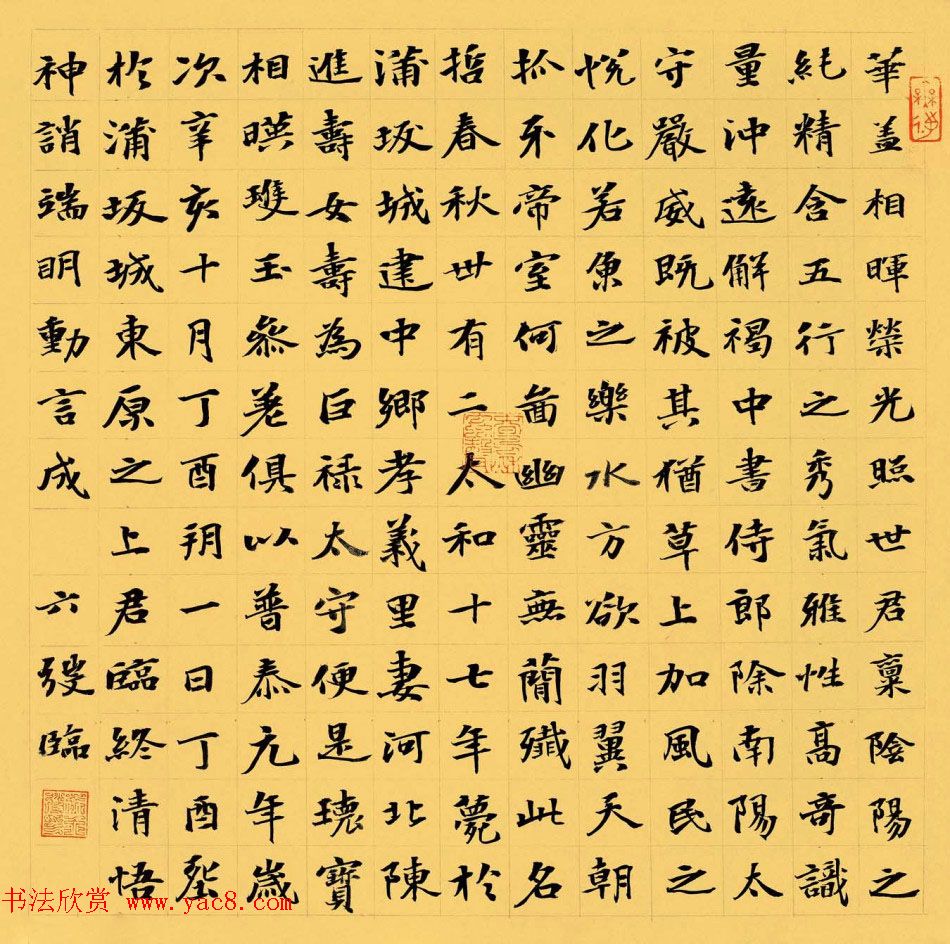 華盖相暉榮光照世君稟陰陽之
純精含五行之秀氣雅性高奇識
量沖遠解褐中書侍郎除南陽太
守嚴威既被其猶草上加風民之
悅化若魚之樂水方欲羽翼天朝
抓牙帝室何啚幽靈無簡殲此名
哲春秋卌有二太和十七年薨於
蒲坂城建中鄉孝義里妻河北陳
進壽女壽為巨禄太守便是瓌寶
相暎雙玉參差俱以普泰元年歲
次辛亥十月丁酉朔一日丁酉塟
於蒲坂城東原之上君臨終清悟
神誚端明動言成 六發臨
书法欣赏 www.yac8.com